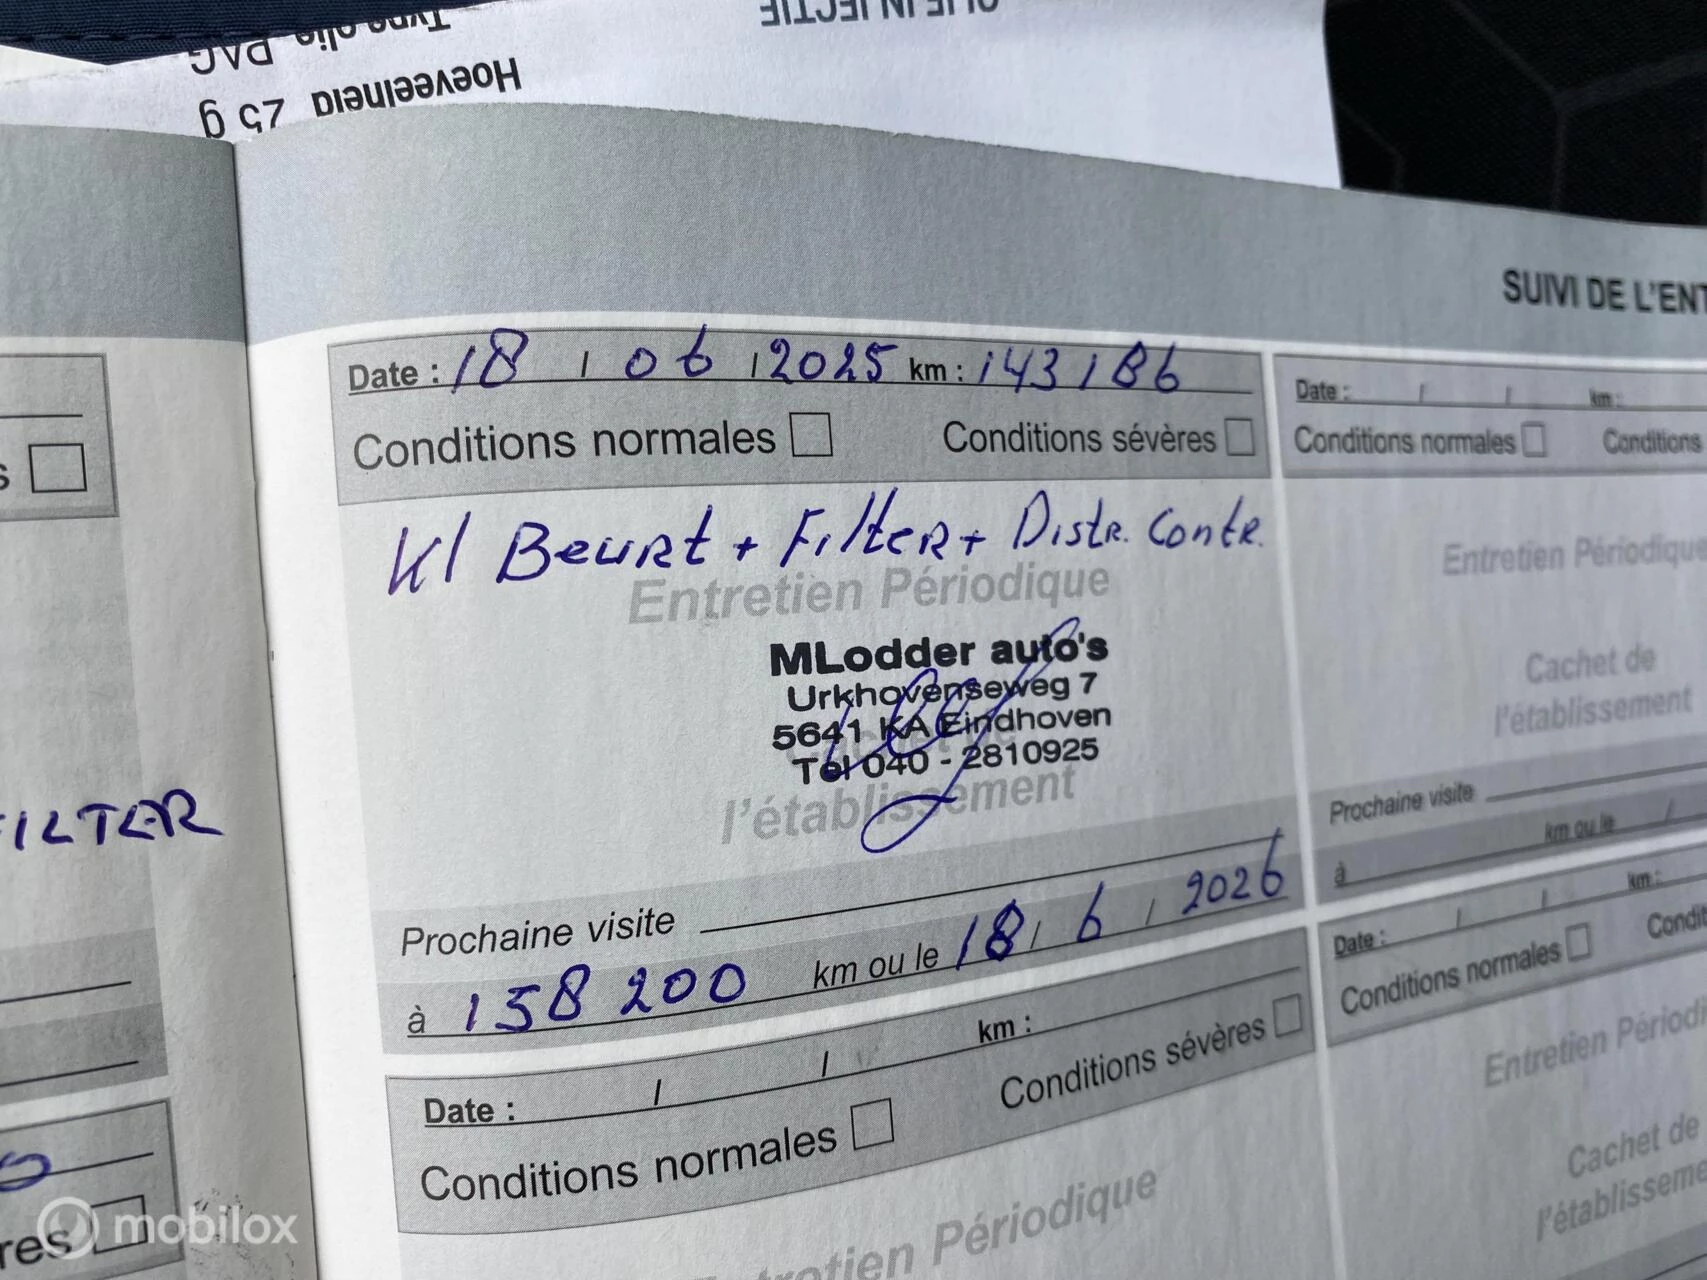 OLIE INJECTIE
Type olie PAG
Hoeveelheid 25 g
SUIVI DE L'ENT
Date : 18 / 06 / 2025 km : 143186
Conditions normales
Conditions sévères
Kl Beurt + Filter + Distr. Contr.
Entretien Périodique
MLodder auto's
Urkhovenseweg 7
5641 KA Eindhoven
Tel 040 - 2810925
l'établissement
Prochaine visite
à 158 200 km ou le 18 / 6 / 2026
Date : / / km :
Conditions normales
Conditions sévères
Entretien Périodique
Date : / / km :
Conditions normales
Conditions
Entretien Périodique
Cachet de
l'établissement
Prochaine visite
à km ou le /
Date : / / km :
Conditions normales
Condi
Entretien Périodi
Cachet de
l'établisseme
s
FILTER
res
mobilox